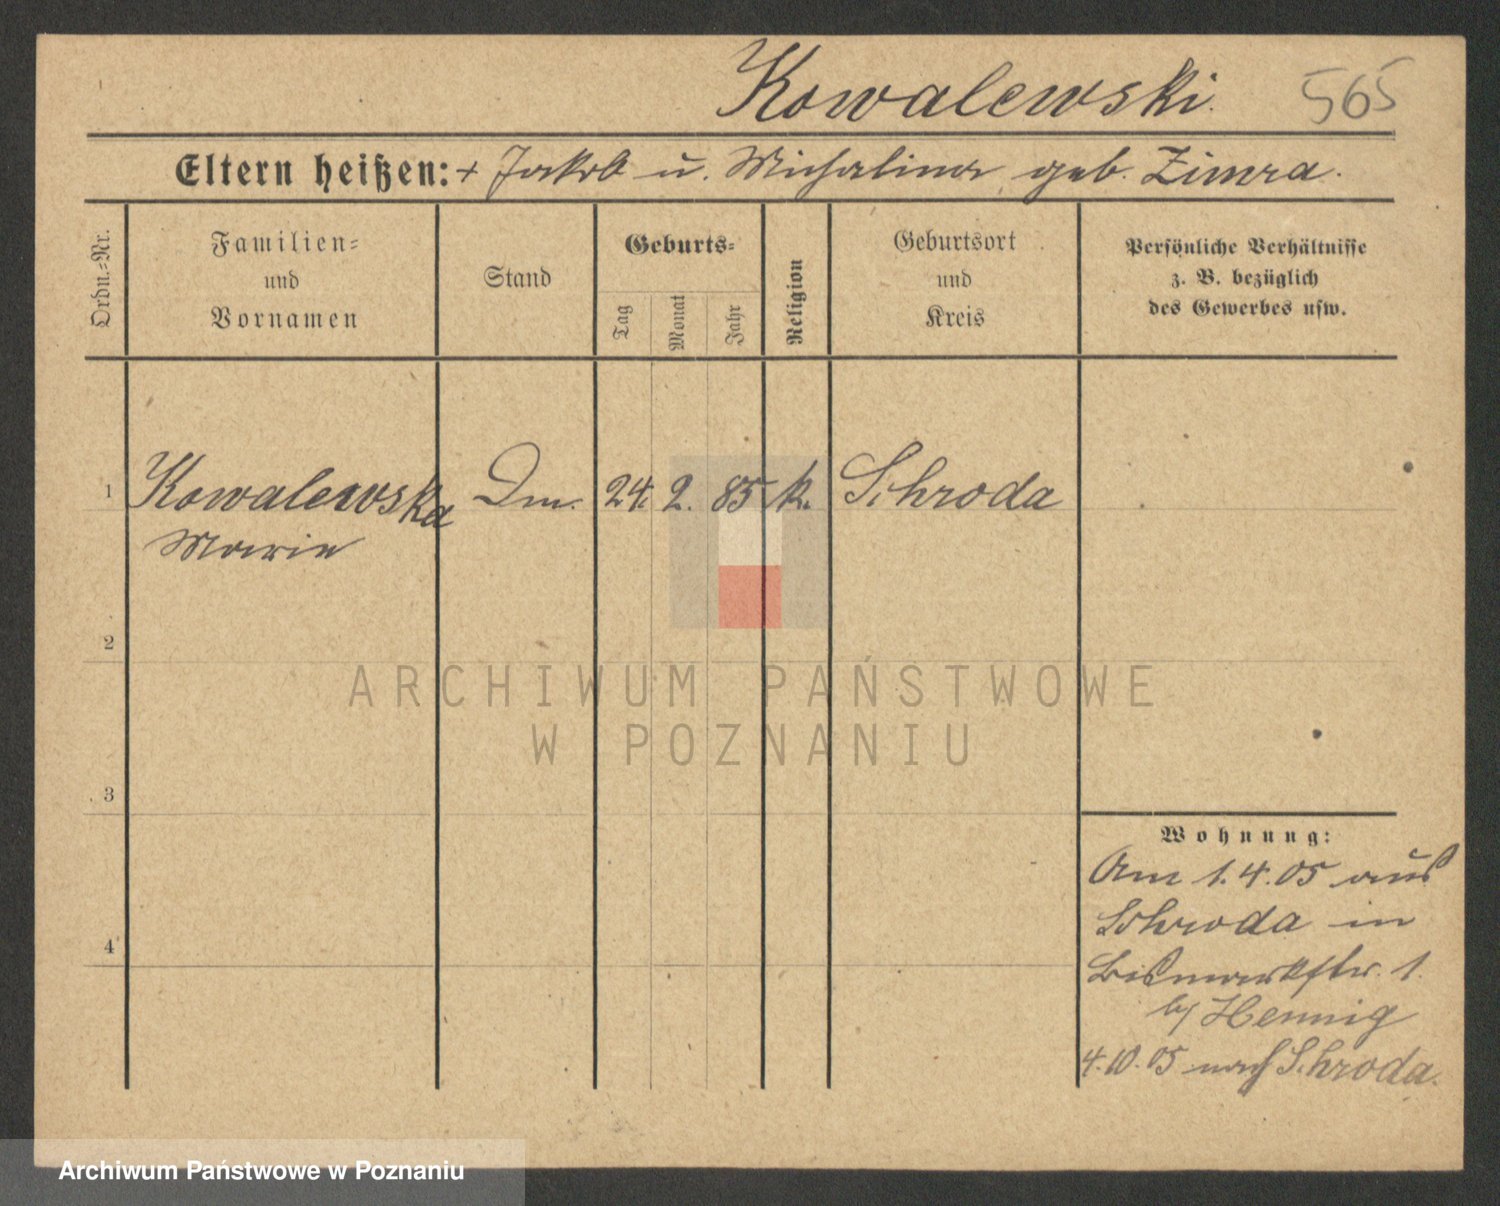 Kowalewski. 565
Eltern heißen: + Jakob u. Michalina geb. Zimra.
Ordn.=Nr.
Familien=
und
Vornamen
Stand
Geburts=
Tag
Monat
Jahr
Religion
Geburtsort
und
Kreis
Persönliche Verhältnisse
z. B. bezüglich
des Gewerbes usw.
1 Kowalewska Dm. 24. 2. 85 k. Schroda
Marie
2
ARCHIWUM PAŃSTWOWE
W POZNANIU
3
Wohnung:
Am 1.4.05 aus
Schroda in
4
Bismarkstr. 1.
by Hennig
4.10.05 nach Schroda.
Archiwum Państwowe w Poznaniu